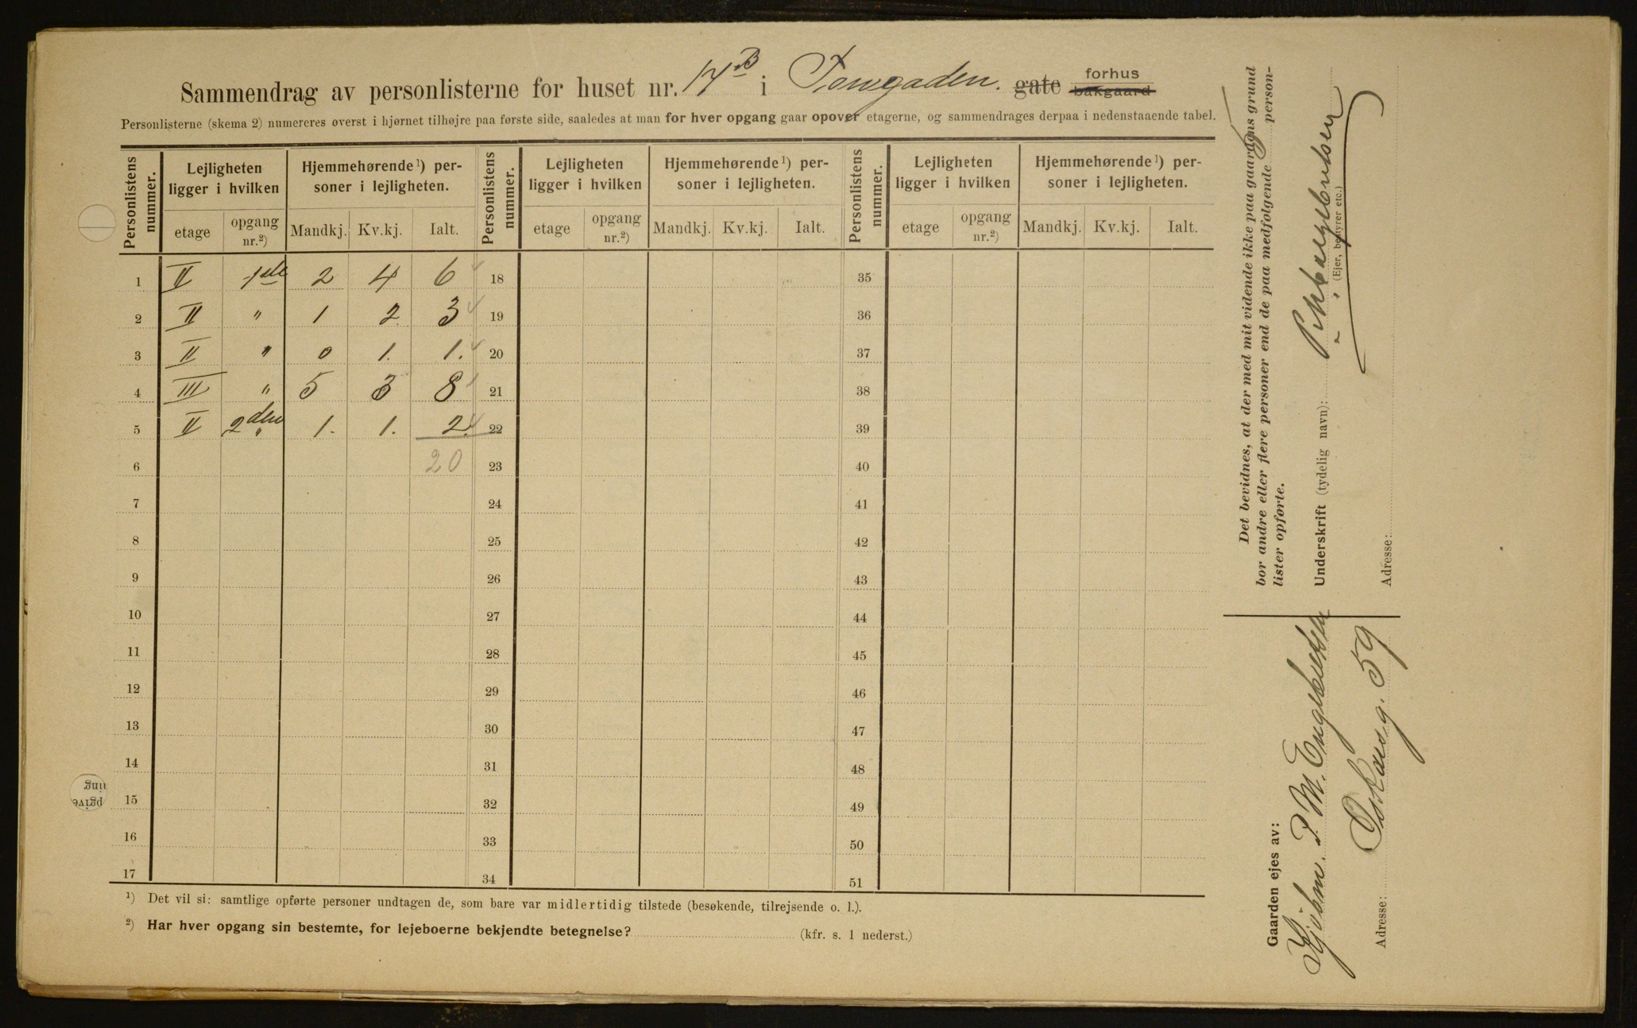 Sammendrag av personlisterne for huset nr. 17 B i gate forhus bakgaard
Personlisterne (skema 2) numereres øverst i hjørnet tilhøjre paa første side, saaledes at man for hver opgang gaar opover etagerne, og sammendrages derpaa i nedenstaaende tabel.
Personlistens nummer. Lejligheten ligger i hvilken Hjemmehørende ¹) personer i lejligheten. Personlistens nummer. Lejligheten ligger i hvilken Hjemmehørende ¹) personer i lejligheten. Personlistens nummer. Lejligheten ligger i hvilken Hjemmehørende ¹) personer i lejligheten.
etage opgang nr.²) Mandkj. Kv.kj. Ialt. etage opgang nr.²) Mandkj. Kv.kj. Ialt. etage opgang nr.²) Mandkj. Kv.kj. Ialt.
1 II 1ste 2 4 6 18 35
2 II " 1 2 3 19 36
3 II " 0 1. 1. 20 37
4 III " 5 3 8 21 38
5 II 2den 1. 1. 2. 22 39
6 20 23 40
7 24 41
8 25 42
9 26 43
10 27 44
11 28 45
12 29 46
13 30 47
14 31 48
15 32 49
16 33 50
17 34 51
¹) Det vil si: samtlige opførte personer undtagen de, som bare var midlertidig tilstede (besøkende, tilrejsende o. l.).
²) Har hver opgang sin bestemte, for lejeboerne bekjendte betegnelse? (kfr. s. 1 nederst.)
Det bevidnes, at der med mit vidende ikke paa gaardens grund
bor andre eller flere personer end de paa medfølgende 5 person-
lister opførte.
Underskrift (tydelig navn):
(Ejer, bestyrer etc.)
Adresse:
Gaarden ejes av:
Kjøbm. P. M. Engebretsen
Adresse: Oskarsg. 59